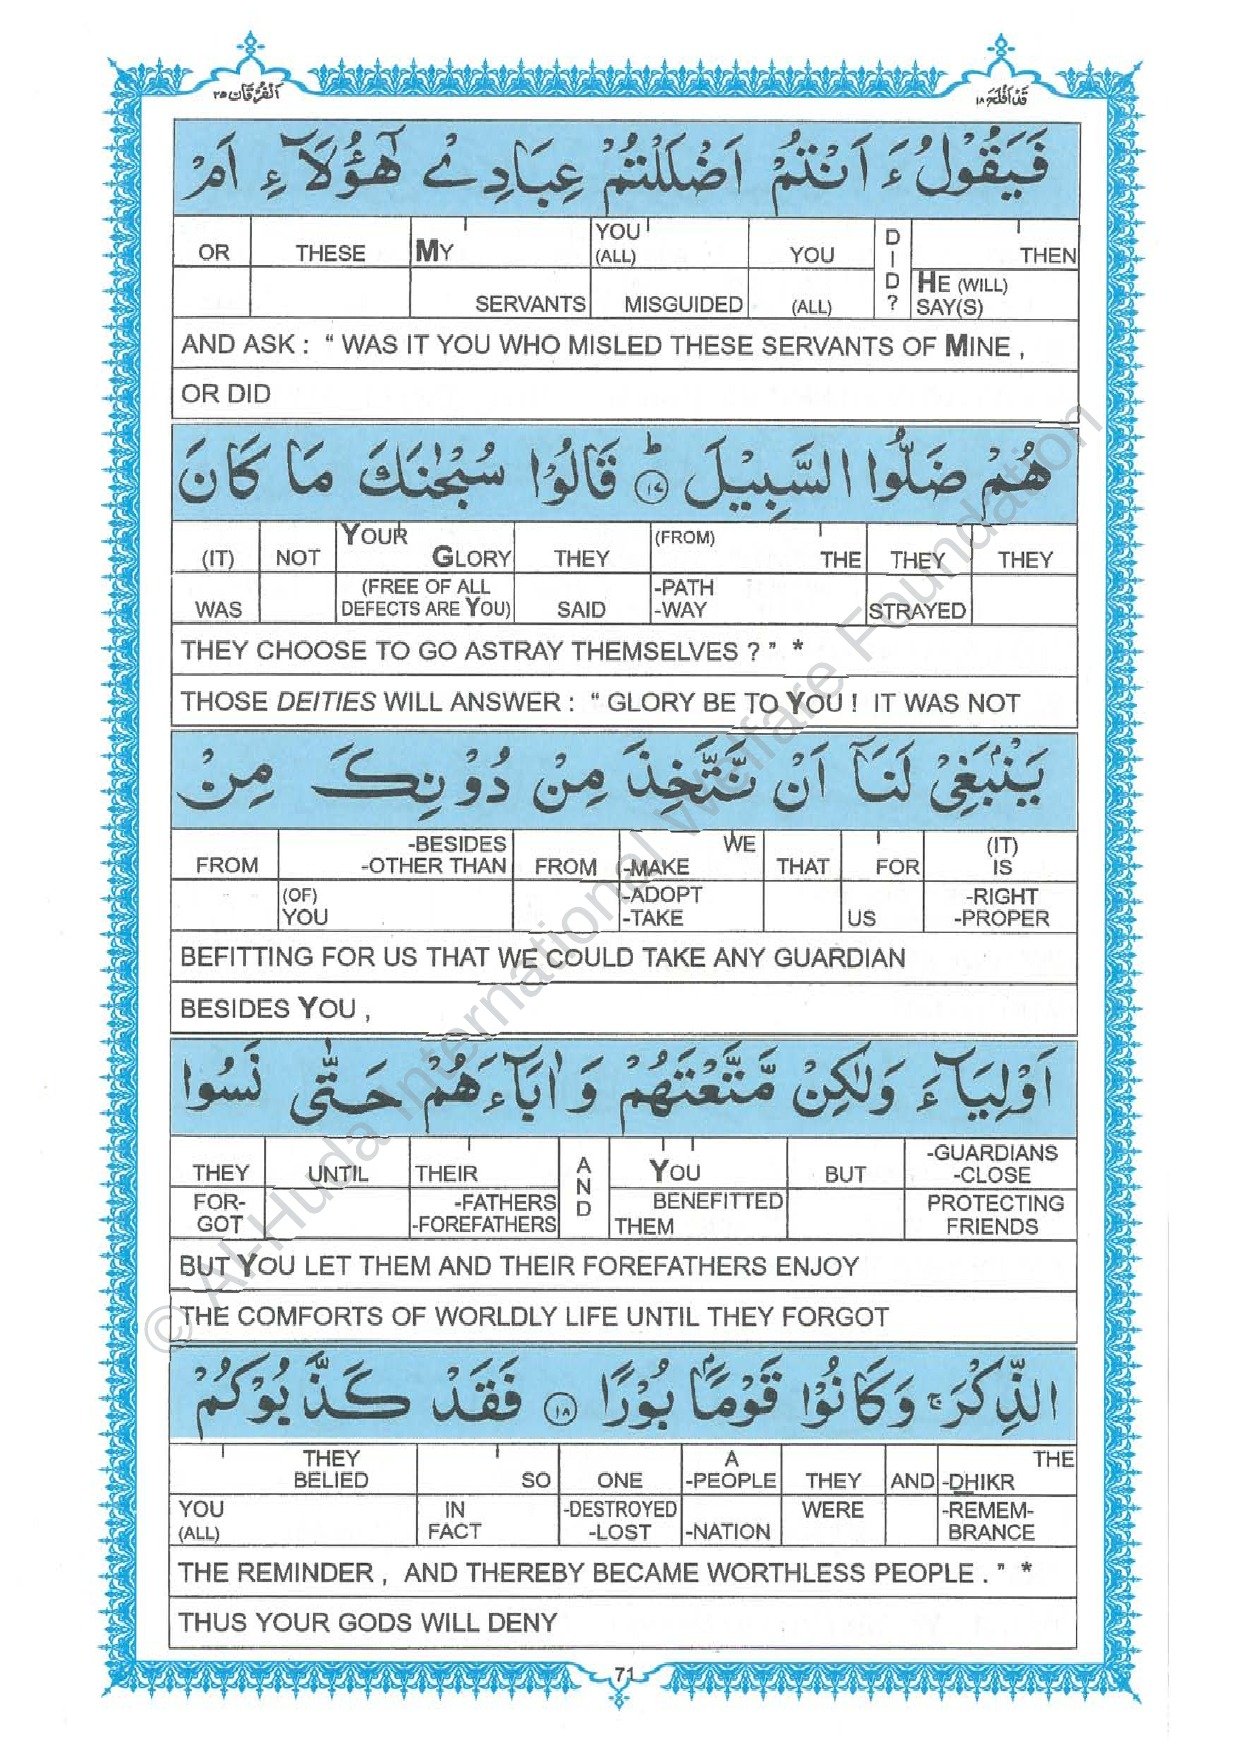 اَلْفُرْقَان ٢٥
قَدْ اَفْلَحَ ١٨
فَيَقُوْلُ ءَ اَنْتُمْ اَضْلَلْتُمْ عِبَادِيْ هٰٓؤُلَآءِ اَمْ
OR THESE MY YOU (ALL) YOU DID? THEN
SERVANTS MISGUIDED (ALL) HE (WILL) SAY(S)
AND ASK : “ WAS IT YOU WHO MISLED THESE SERVANTS OF MINE ,
OR DID
هُمْ ضَلُّوا السَّبِيْلَ ؕ ١٧ قَالُوْا سُبْحٰنَكَ مَا كَانَ
(IT) NOT YOUR GLORY THEY (FROM) THE THEY THEY
WAS (FREE OF ALL DEFECTS ARE YOU) SAID -PATH -WAY STRAYED
THEY CHOOSE TO GO ASTRAY THEMSELVES ? ” *
THOSE DEITIES WILL ANSWER : “ GLORY BE TO YOU ! IT WAS NOT
يَنْۢبَغِيْ لَنَآ اَنْ نَّتَّخِذَ مِنْ دُوْنِكَ مِنْ
FROM -BESIDES -OTHER THAN FROM -MAKE WE THAT FOR (IT) IS
(OF) YOU -ADOPT -TAKE US -RIGHT -PROPER
BEFITTING FOR US THAT WE COULD TAKE ANY GUARDIAN
BESIDES YOU ,
اَوْلِيَآءَ وَلٰكِنْ مَّتَّعْتَهُمْ وَ اٰبَآءَهُمْ حَتّٰى نَسُوا
THEY UNTIL THEIR AND YOU BUT -GUARDIANS -CLOSE
FOR-GOT -FATHERS -FOREFATHERS BENEFITTED THEM PROTECTING FRIENDS
BUT YOU LET THEM AND THEIR FOREFATHERS ENJOY
THE COMFORTS OF WORLDLY LIFE UNTIL THEY FORGOT
الذِّكْرَ ۚ وَكَانُوْا قَوْمًۢا بُوْرًا ١٨ فَقَدْ كَذَّبُوْكُمْ
THEY BELIED SO ONE A -PEOPLE THEY AND THE -DHIKR
YOU (ALL) IN FACT -DESTROYED -LOST -NATION WERE -REMEM-BRANCE
THE REMINDER , AND THEREBY BECAME WORTHLESS PEOPLE . ” *
THUS YOUR GODS WILL DENY
71
© Al-Huda International Welfare Foundation